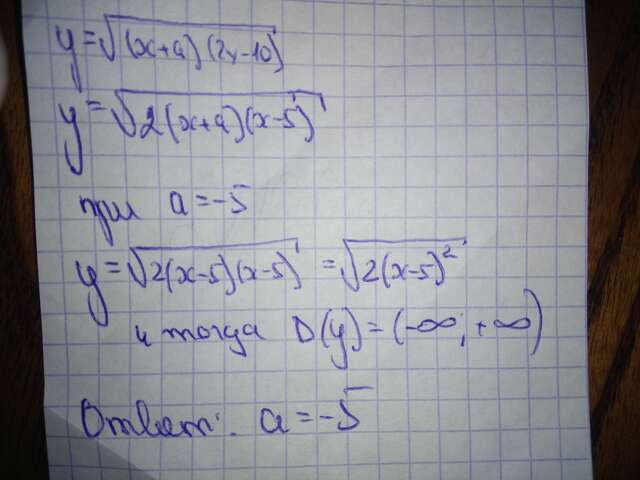 y = √(x+a)(2x-10)
y = √2(x+a)(x-5)
при a = -5
y = √2(x-5)(x-5) = √2(x-5)²
и тогда D(y) = (-∞; +∞)
Ответ: a = -5